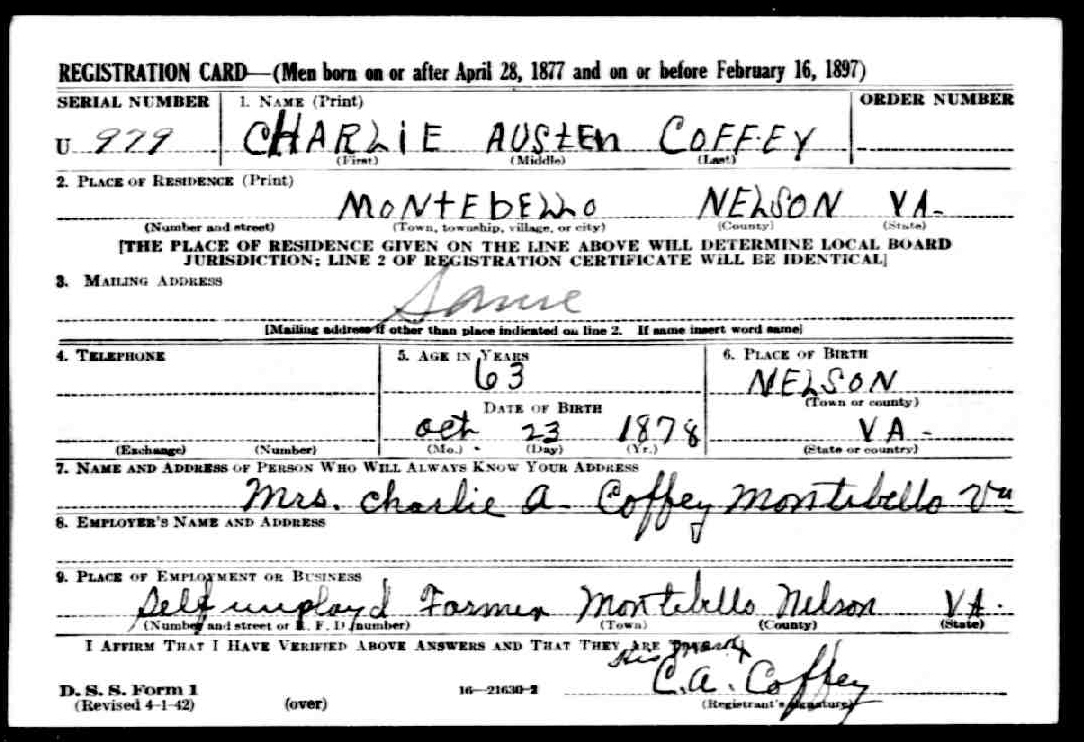 REGISTRATION CARD—(Men born on or after April 28, 1877 and on or before February 16, 1897)
SERIAL NUMBER 1. NAME (Print) ORDER NUMBER
U 979 CHARLIE AUSTEN COFFEY
(First) (Middle) (Last)
2. PLACE OF RESIDENCE (Print)
MONTEBELLO NELSON VA-
(Number and street) (Town, township, village, or city) (County) (State)
[THE PLACE OF RESIDENCE GIVEN ON THE LINE ABOVE WILL DETERMINE LOCAL BOARD
JURISDICTION; LINE 2 OF REGISTRATION CERTIFICATE WILL BE IDENTICAL]
3. MAILING ADDRESS
Same
[Mailing address if other than place indicated on line 2. If same insert word same]
4. TELEPHONE 5. AGE IN YEARS 6. PLACE OF BIRTH
63 NELSON
DATE OF BIRTH (Town or county)
Oct 23 1878 VA-
(Exchange) (Number) (Mo.) (Day) (Yr.) (State or country)
7. NAME AND ADDRESS OF PERSON WHO WILL ALWAYS KNOW YOUR ADDRESS
Mrs. Charlie A. Coffey Montibello Va
8. EMPLOYER'S NAME AND ADDRESS
9. PLACE OF EMPLOYMENT OR BUSINESS
Self unployd Farmer Montibello Nelson VA.
(Number and street or R. F. D. number) (Town) (County) (State)
I AFFIRM THAT I HAVE VERIFIED ABOVE ANSWERS AND THAT THEY ARE TRUE.
His Mark X
C.A. Coffey
D. S. S. Form 1 16—21630-2
(Revised 4-1-42) (over) (Registrant's signature)